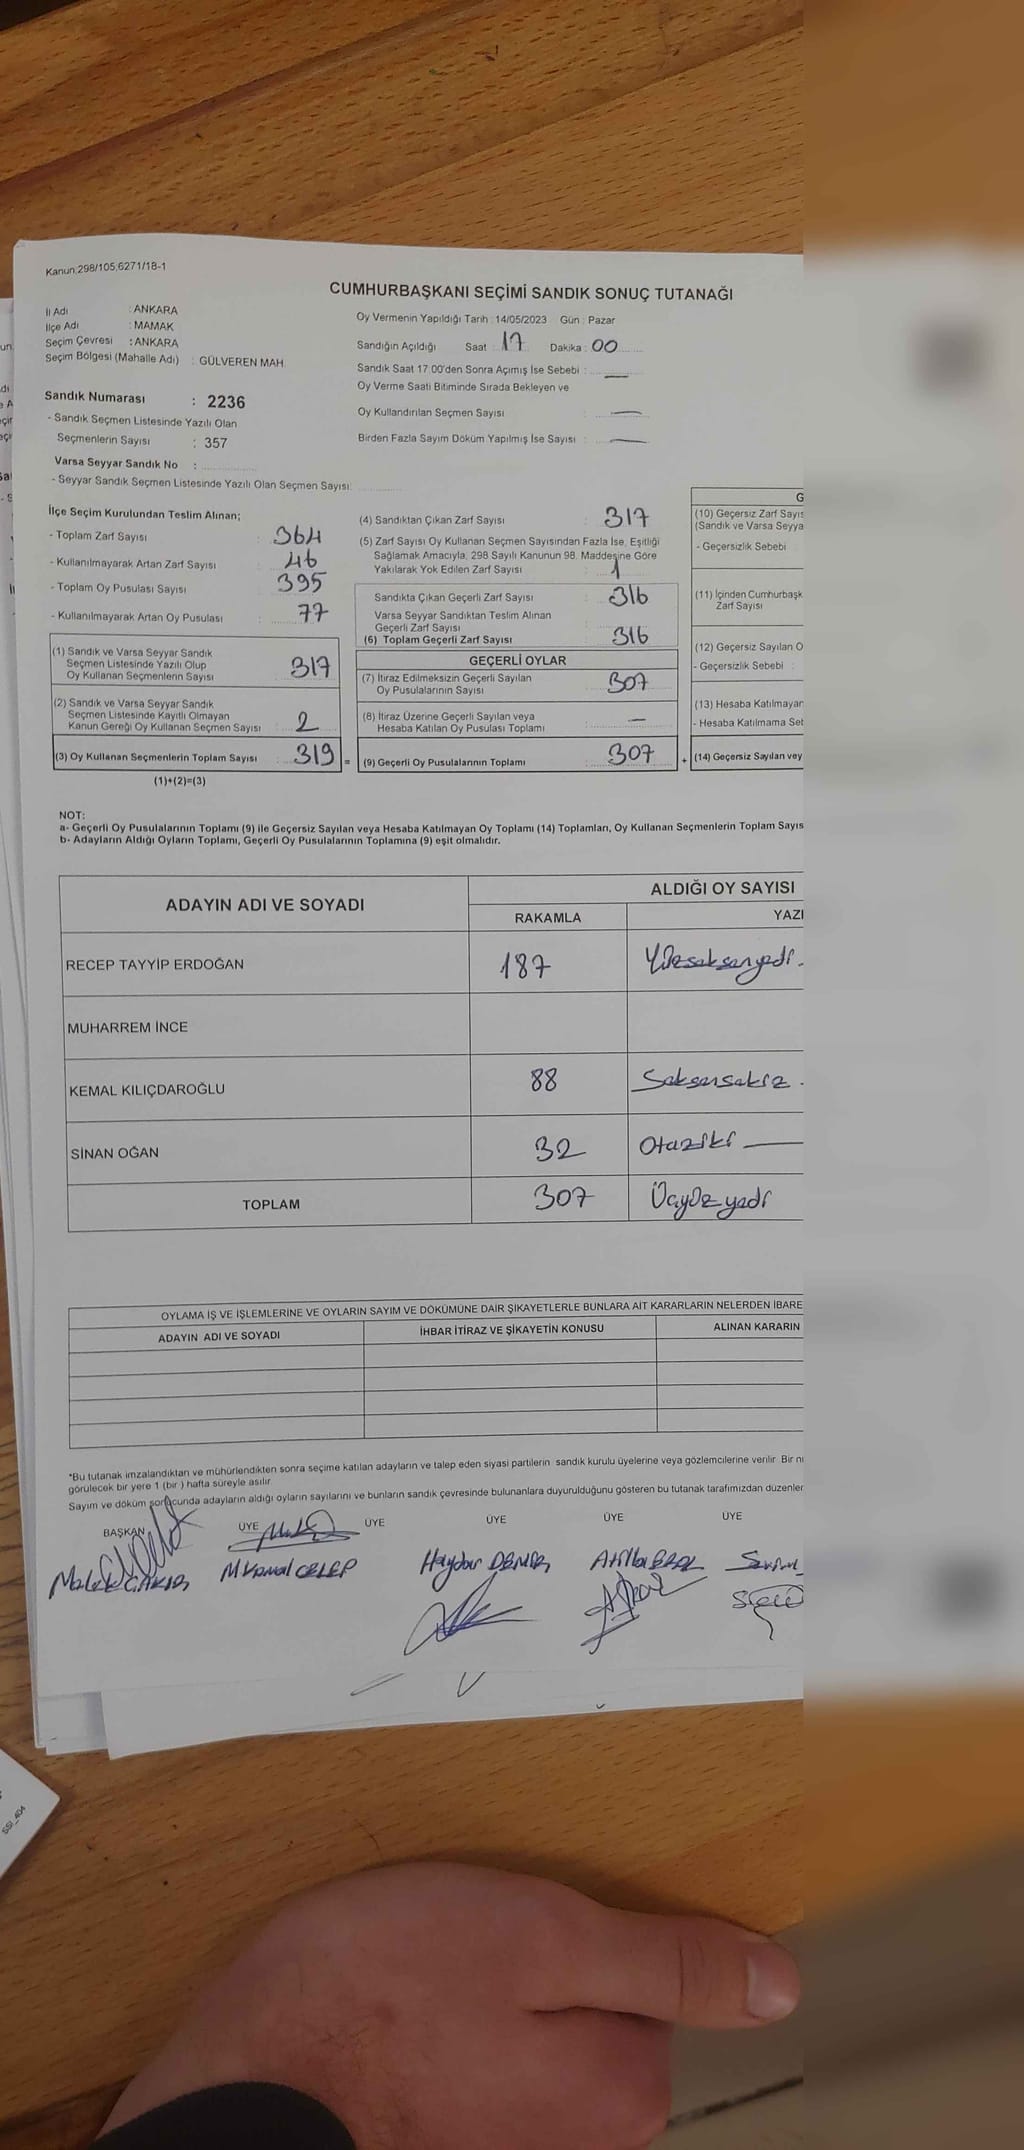 Kanun;298/105;6271/18-1
CUMHURBAŞKANI SEÇİMİ SANDIK SONUÇ TUTANAĞI
İl Adı : ANKARA
İlçe Adı : MAMAK
Seçim Çevresi : ANKARA
Seçim Bölgesi (Mahalle Adı) : GÜLVEREN MAH.
Sandık Numarası : 2236
- Sandık Seçmen Listesinde Yazılı Olan
Seçmenlerin Sayısı : 357
Varsa Seyyar Sandık No :
- Seyyar Sandık Seçmen Listesinde Yazılı Olan Seçmen Sayısı:
Oy Vermenin Yapıldığı Tarih : 14/05/2023 Gün : Pazar
Sandığın Açıldığı Saat : 17 Dakika : 00
Sandık Saat 17:00'den Sonra Açımış İse Sebebi : —
Oy Verme Saati Bitiminde Sırada Bekleyen ve
Oy Kullandırılan Seçmen Sayısı : —
Birden Fazla Sayım Döküm Yapılmış İse Sayısı : —
İlçe Seçim Kurulundan Teslim Alınan;
- Toplam Zarf Sayısı : 364
- Kullanılmayarak Artan Zarf Sayısı : 46
- Toplam Oy Pusulası Sayısı : 395
- Kullanılmayarak Artan Oy Pusulası : 77
(1) Sandık ve Varsa Seyyar Sandık
Seçmen Listesinde Yazılı Olup
Oy Kullanan Seçmenlerin Sayısı : 317
(2) Sandık ve Varsa Seyyar Sandık
Seçmen Listesinde Kayıtlı Olmayan
Kanun Gereği Oy Kullanan Seçmen Sayısı : 2
(3) Oy Kullanan Seçmenlerin Toplam Sayısı : 319 =
(1)+(2)=(3)
(4) Sandıktan Çıkan Zarf Sayısı : 317
(5) Zarf Sayısı Oy Kullanan Seçmen Sayısından Fazla İse, Eşitliği
Sağlamak Amacıyla, 298 Sayılı Kanunun 98. Maddesine Göre
Yakılarak Yok Edilen Zarf Sayısı : 1
Sandıkta Çıkan Geçerli Zarf Sayısı : 316
Varsa Seyyar Sandıktan Teslim Alınan
Geçerli Zarf Sayısı
(6) Toplam Geçerli Zarf Sayısı : 316
GEÇERLİ OYLAR
(7) İtiraz Edilmeksizin Geçerli Sayılan
Oy Pusulalarının Sayısı : 307
(8) İtiraz Üzerine Geçerli Sayılan veya
Hesaba Katılan Oy Pusulası Toplamı : —
(9) Geçerli Oy Pusulalarının Toplamı : 307 +
G
(10) Geçersiz Zarf Sayıs
(Sandık ve Varsa Seyya
- Geçersizlik Sebebi
(11) İçinden Cumhurbaşk
Zarf Sayısı
(12) Geçersiz Sayılan O
- Geçersizlik Sebebi :
(13) Hesaba Katılmayan
- Hesaba Katılmama Seb
(14) Geçersiz Sayılan vey
NOT:
a- Geçerli Oy Pusulalarının Toplamı (9) ile Geçersiz Sayılan veya Hesaba Katılmayan Oy Toplamı (14) Toplamları, Oy Kullanan Seçmenlerin Toplam Sayıs
b- Adayların Aldığı Oyların Toplamı, Geçerli Oy Pusulalarının Toplamına (9) eşit olmalıdır.
ADAYIN ADI VE SOYADI ALDIĞI OY SAYISI
RAKAMLA YAZI
RECEP TAYYİP ERDOĞAN 187 Yüzseksenyedi
MUHARREM İNCE
KEMAL KILIÇDAROĞLU 88 Seksensekiz
SİNAN OĞAN 32 Otuziki
TOPLAM 307 Üçyüzyedi
OYLAMA İŞ VE İŞLEMLERİNE VE OYLARIN SAYIM VE DÖKÜMÜNE DAİR ŞİKAYETLERLE BUNLARA AİT KARARLARIN NELERDEN İBARE
ADAYIN ADI VE SOYADI İHBAR İTİRAZ VE ŞİKAYETİN KONUSU ALINAN KARARIN
*Bu tutanak imzalandıktan ve mühürlendikten sonra seçime katılan adayların ve talep eden siyasi partilerin sandık kurulu üyelerine veya gözlemcilerine verilir. Bir n
görülecek bir yere 1 (bir ) hafta süreyle asılır.
Sayım ve döküm sonucunda adayların aldığı oyların sayılarını ve bunların sandık çevresinde bulunanlara duyurulduğunu gösteren bu tutanak tarafımızdan düzenler
BAŞKAN ÜYE ÜYE ÜYE ÜYE ÜYE
M Kemal CELEP Haydar DEMİR
SSI_404